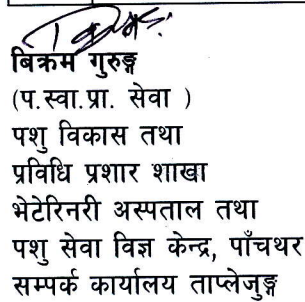 बिक्रम गुरुङ्ग
(प.स्वा.प्रा. सेवा )
पशु विकास तथा
प्रविधि प्रशार शाखा
भेटेरिनरी अस्पताल तथा
पशु सेवा विज्ञ केन्द्र, पाँचथर
सम्पर्क कार्यालय ताप्लेजुङ्ग